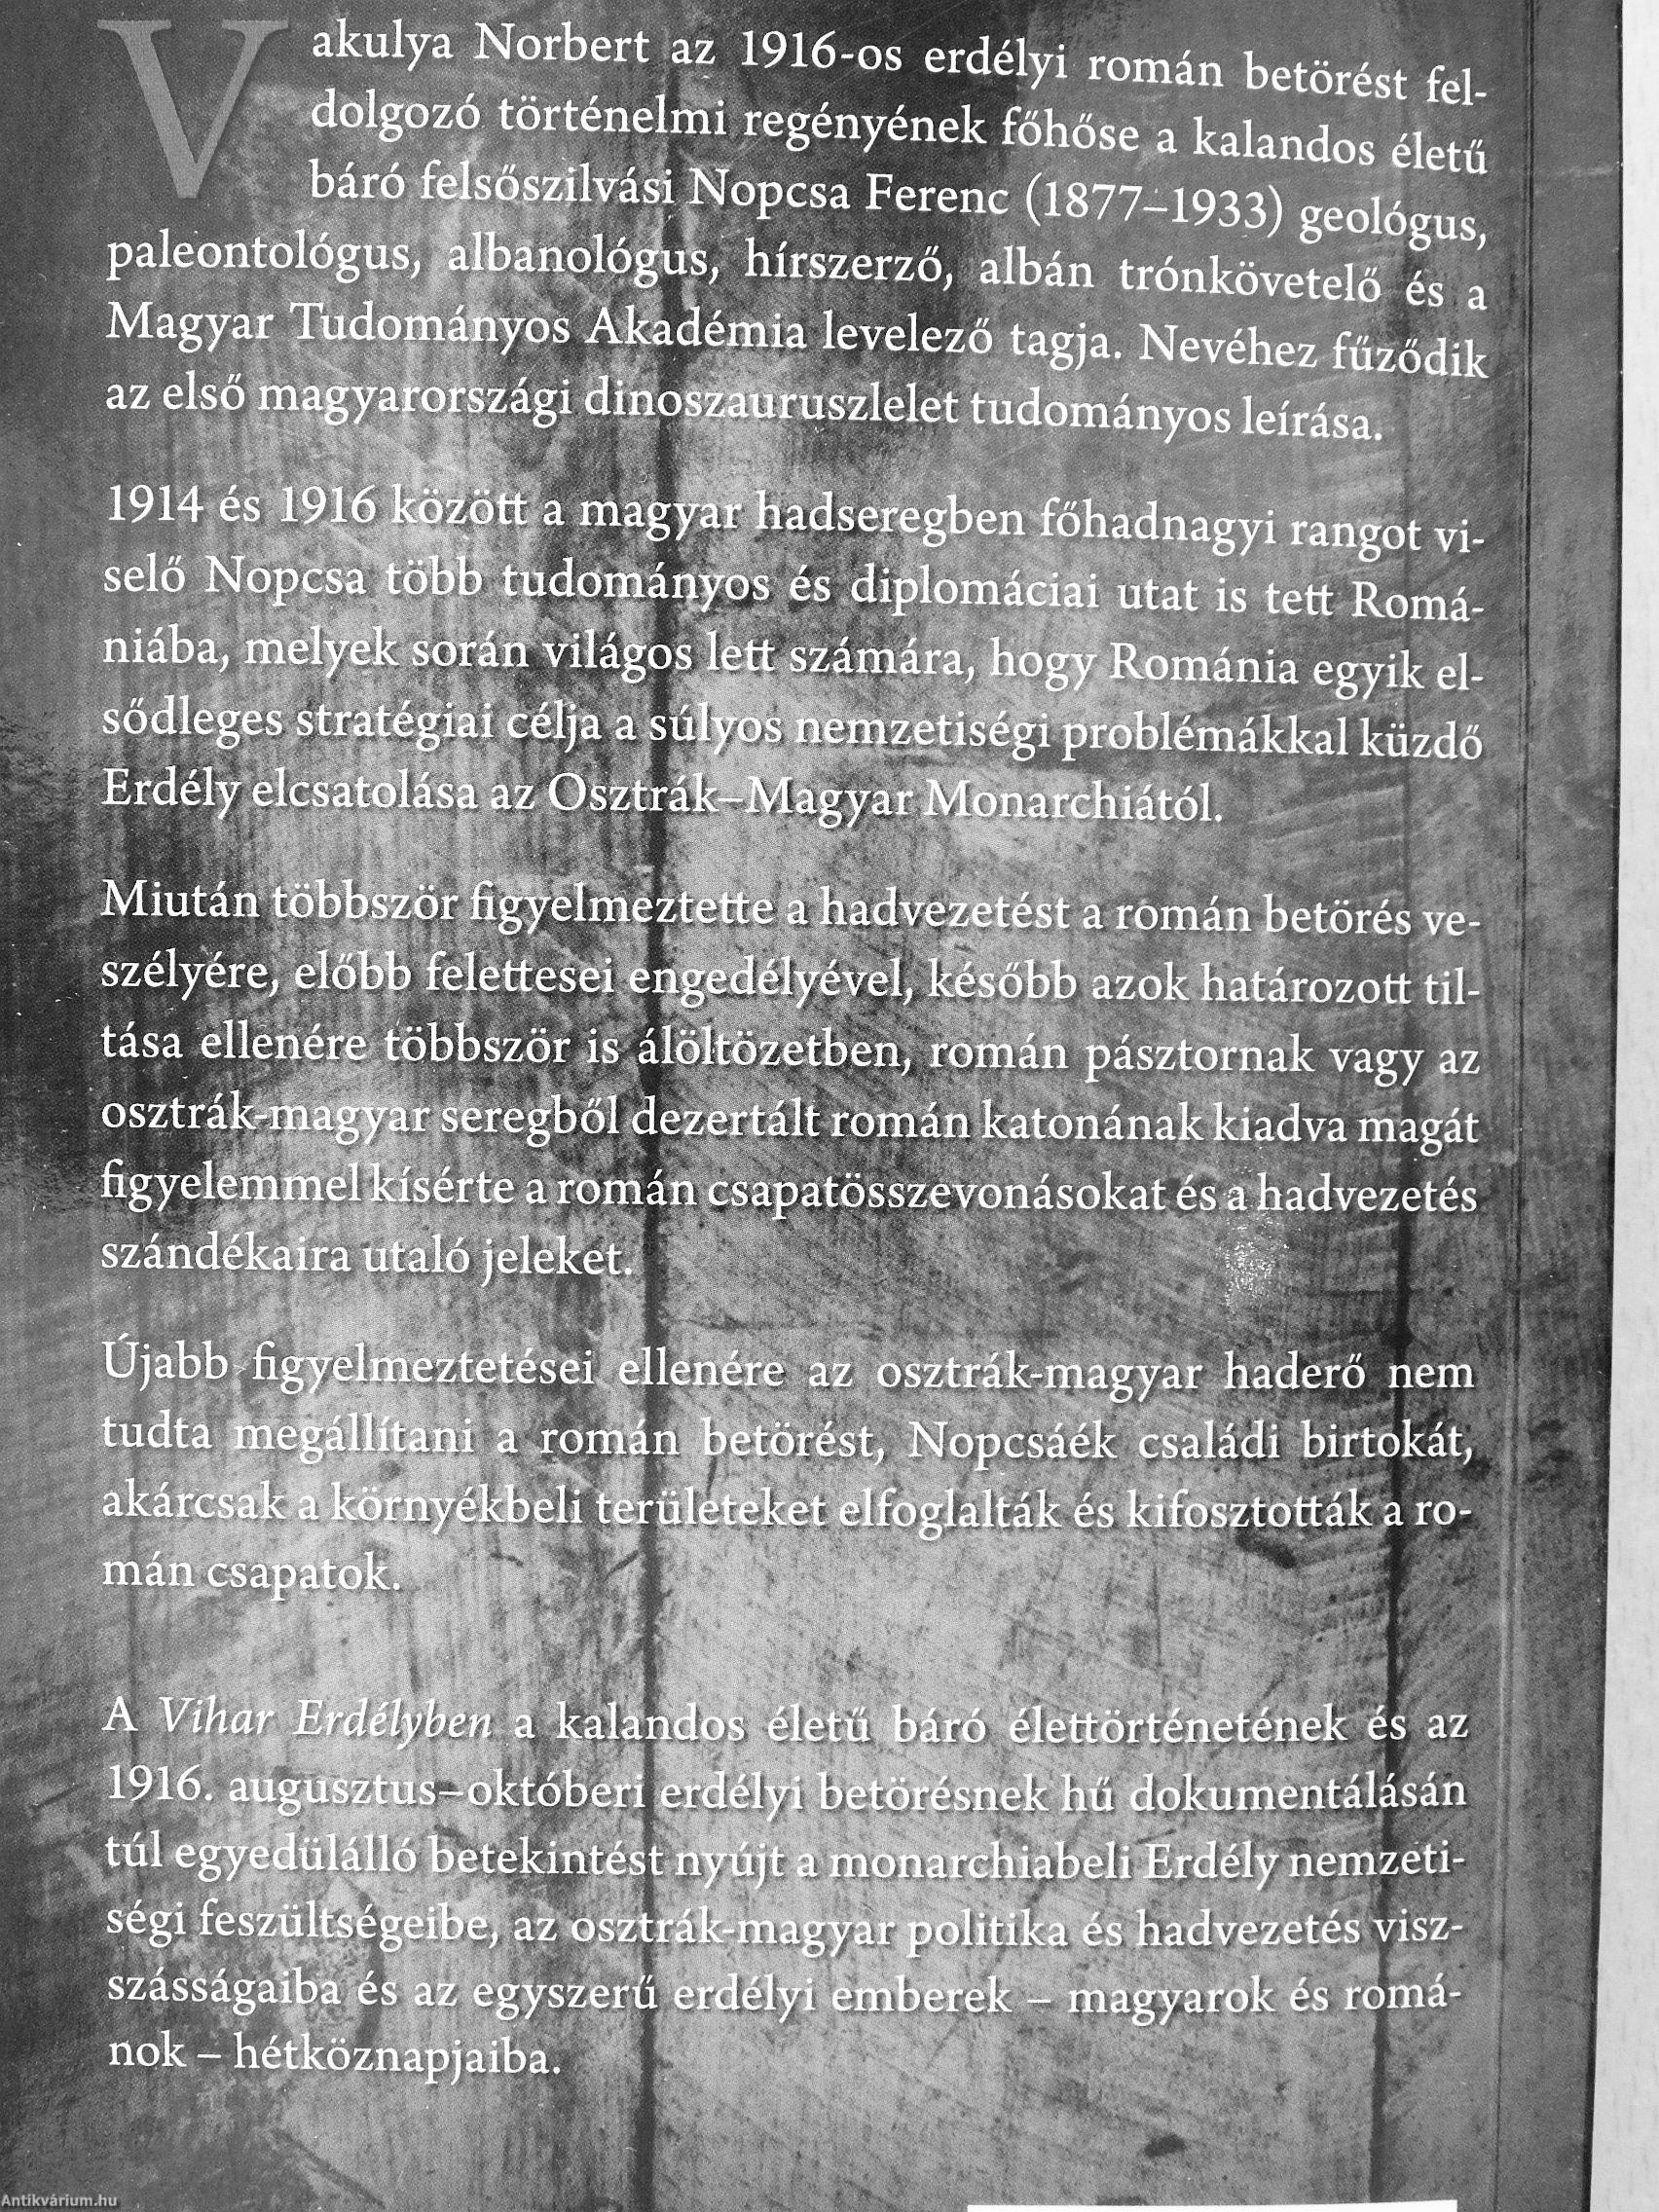 Vakulya Norbert az 1916-os erdélyi román betörést fel-
dolgozó történelmi regényének főhőse a kalandos életű
báró felsőszilvási Nopcsa Ferenc (1877–1933) geológus,
paleontológus, albanológus, hírszerző, albán trónkövetelő és a
Magyar Tudományos Akadémia levelező tagja. Nevéhez fűződik
az első magyarországi dinoszauruszlelet tudományos leírása.
1914 és 1916 között a magyar hadseregben főhadnagyi rangot vi-
selő Nopcsa több tudományos és diplomáciai utat is tett Romá-
niába, melyek során világos lett számára, hogy Románia egyik el-
sődleges stratégiai célja a súlyos nemzetiségi problémákkal küzdő
Erdély elcsatolása az Osztrák–Magyar Monarchiától.
Miután többször figyelmeztette a hadvezetést a román betörés ve-
szélyére, előbb felettesei engedélyével, később azok határozott til-
tása ellenére többször is álöltözetben, román pásztornak vagy az
osztrák-magyar seregből dezertált román katonának kiadva magát
figyelemmel kísérte a román csapatösszevonásokat és a hadvezetés
szándékaira utaló jeleket.
Újabb figyelmeztetései ellenére az osztrák-magyar haderő nem
tudta megállítani a román betörést, Nopcsáék családi birtokát,
akárcsak a környékbeli területeket elfoglalták és kifosztották a ro-
mán csapatok.
A Vihar Erdélyben a kalandos életű báró élettörténetének és az
1916. augusztus–októberi erdélyi betörésnek hű dokumentálásán
túl egyedülálló betekintést nyújt a monarchiabeli Erdély nemzeti-
ségi feszültségeibe, az osztrák-magyar politika és hadvezetés visz-
szásságaiba és az egyszerű erdélyi emberek – magyarok és romá-
nok – hétköznapjaiba.
Antikvárium.hu